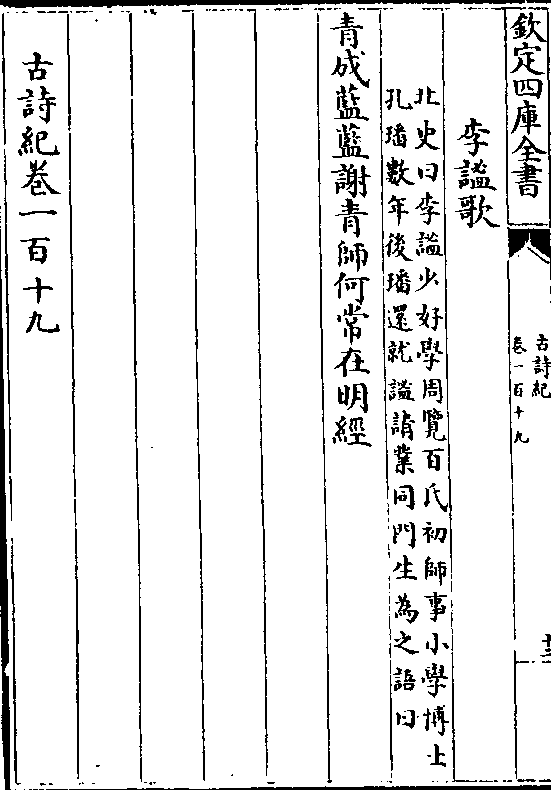 欽定四庫全書
古詩紀
卷一百十九
李謐歌
北史曰李謐少好學周覽百氏初師事小學博士
孔璠數年後璠還就謐請業同門生為之語曰
青成藍藍謝青師何常在明經
古詩紀卷一百十九